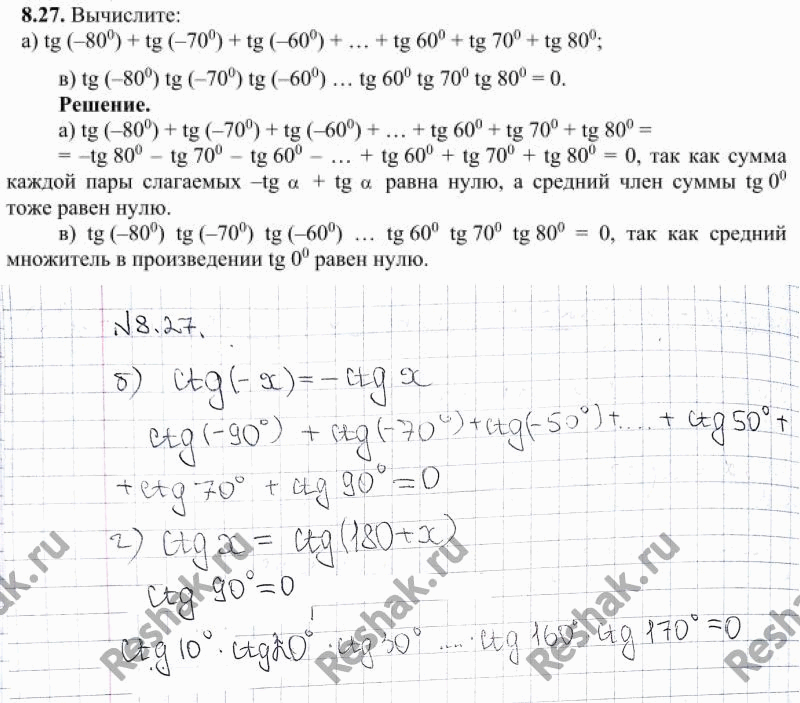 8.27. Вычислите:
а) tg (–80⁰) + tg (–70⁰) + tg (–60⁰) + … + tg 60⁰ + tg 70⁰ + tg 80⁰;
в) tg (–80⁰) tg (–70⁰) tg (–60⁰) … tg 60⁰ tg 70⁰ tg 80⁰ = 0.
Решение.
а) tg (–80⁰) + tg (–70⁰) + tg (–60⁰) + … + tg 60⁰ + tg 70⁰ + tg 80⁰ =
= –tg 80⁰ – tg 70⁰ – tg 60⁰ – … + tg 60⁰ + tg 70⁰ + tg 80⁰ = 0, так как сумма
каждой пары слагаемых –tg α + tg α равна нулю, а средний член суммы tg 0⁰
тоже равен нулю.
в) tg (–80⁰) tg (–70⁰) tg (–60⁰) … tg 60⁰ tg 70⁰ tg 80⁰ = 0, так как средний
множитель в произведении tg 0⁰ равен нулю.
№8.27.
б) ctg(-x)=-ctg x
ctg(-90°) + ctg(-70°)+ctg(-50°)+...+ ctg50°+
+ctg 70° + ctg 90°=0
г) ctg x = ctg(180+x)
ctg 90°=0
ctg 10° · ctg20° · ctg30° .... · ctg 160° ctg 170°=0
Reshak.ru
Reshak.ru
Reshak.ru
Reshak.ru